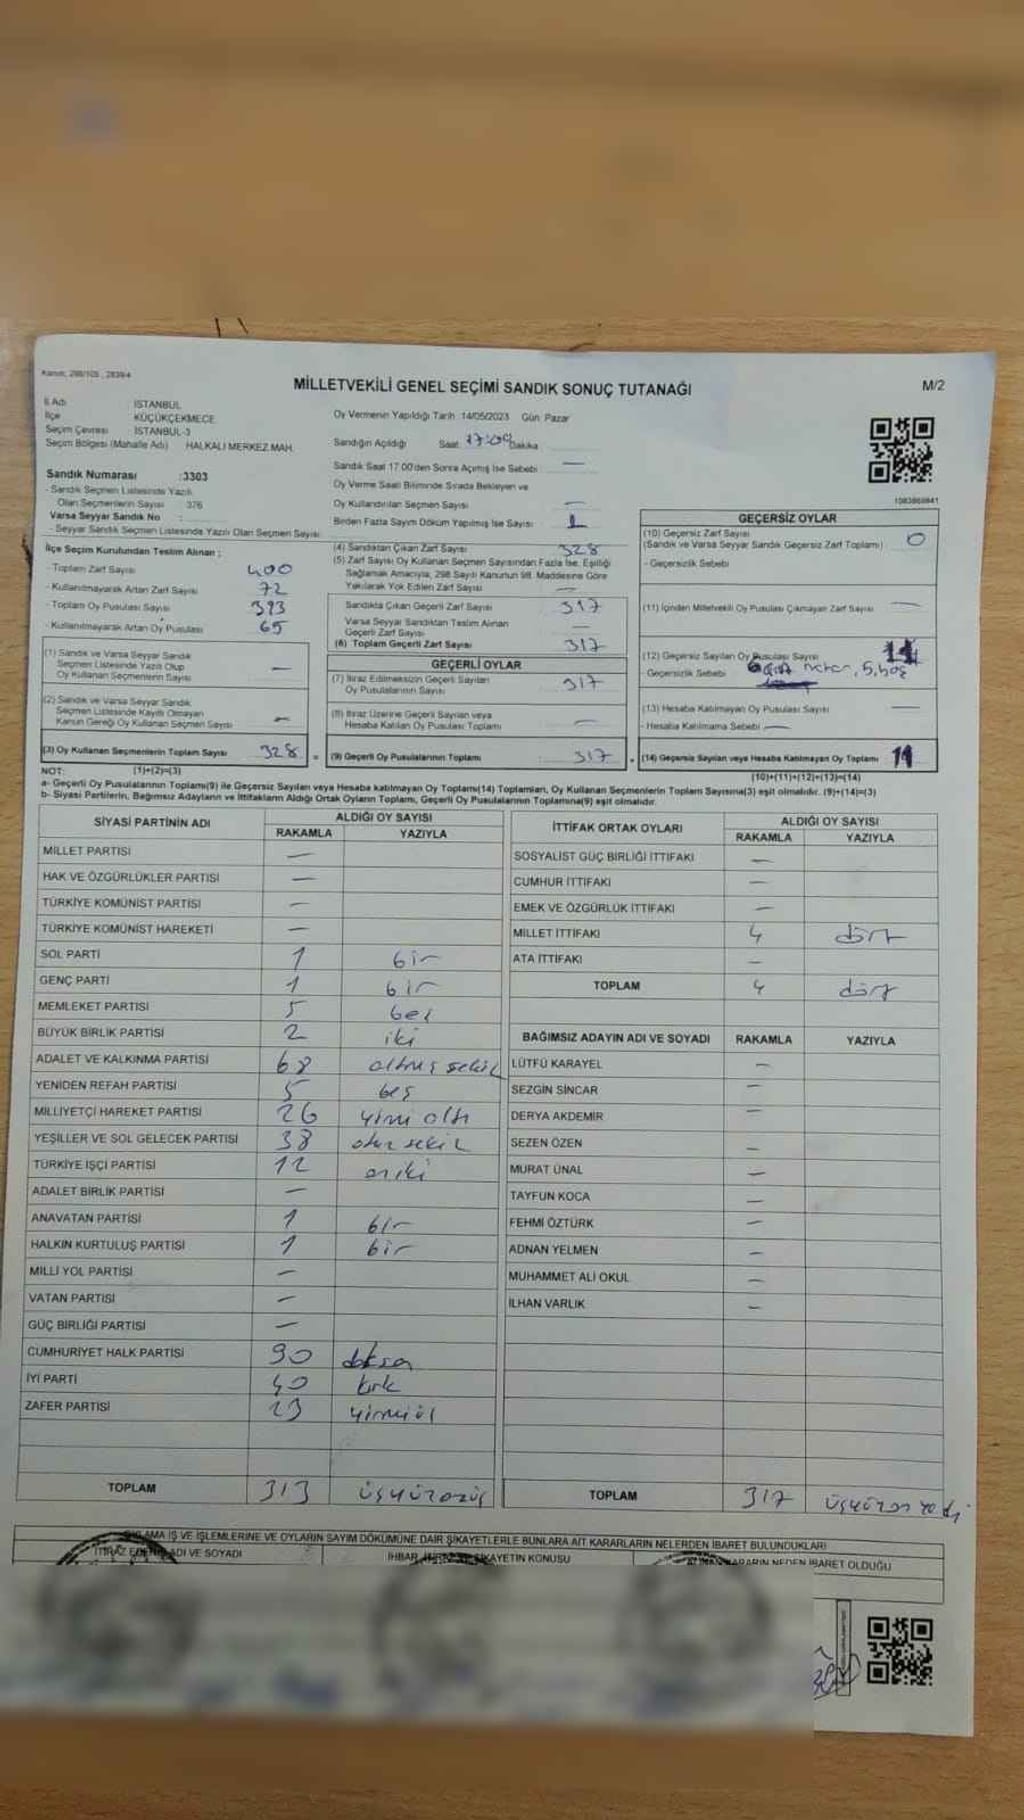 Kanun: 298/105, 2839/4
MİLLETVEKİLİ GENEL SEÇİMİ SANDIK SONUÇ TUTANAĞI
M/2
İl Adı : İSTANBUL
İlçe : KÜÇÜKÇEKMECE
Seçim Çevresi : İSTANBUL-3
Seçim Bölgesi (Mahalle Adı) : HALKALI MERKEZ MAH.
Oy Vermenin Yapıldığı Tarih :14/05/2023 Gün: Pazar
Sandığın Açıldığı Saat: Dakika
Sandık Saat 17.00'den Sonra Açılmış İse Sebebi —
Oy Verme Saati Bitiminde Sırada Bekleyen ve
Oy Kullandırılan Seçmen Sayısı —
Birden Fazla Sayım Döküm Yapılmış İse Sayısı : 1
Sandık Numarası :3303
- Sandık Seçmen Listesinde Yazılı
Olan Seçmenlerin Sayısı : 376
Varsa Seyyar Sandık No :
- Seyyar Sandık Seçmen Listesinde Yazılı Olan Seçmen Sayısı:
1083869841
İlçe Seçim Kurulundan Teslim Alınan ;
- Toplam Zarf Sayısı 400
- Kullanılmayarak Artan Zarf Sayısı 72
- Toplam Oy Pusulası Sayısı 393
- Kullanılmayarak Artan Oy Pusulası 65
(1) Sandık ve Varsa Seyyar Sandık
Seçmen Listesinde Yazılı Olup
Oy Kullanan Seçmenlerin Sayısı —
(2) Sandık ve Varsa Seyyar Sandık
Seçmen Listesinde Kayıtlı Olmayan
Kanun Gereği Oy Kullanan Seçmen Sayısı —
(3) Oy Kullanan Seçmenlerin Toplam Sayısı 328
(4) Sandıktan Çıkan Zarf Sayısı 328
(5) Zarf Sayısı Oy Kullanan Seçmen Sayısından Fazla İse, Eşitliği
Sağlamak Amacıyla, 298 Sayılı Kanunun 98. Maddesine Göre
Yakılarak Yok Edilen Zarf Sayısı —
Sandıkta Çıkan Geçerli Zarf Sayısı 317
Varsa Seyyar Sandıktan Teslim Alınan
Geçerli Zarf Sayısı —
(6) Toplam Geçerli Zarf Sayısı 317
GEÇERLİ OYLAR
(7) İtiraz Edilmeksizin Geçerli Sayılan
Oy Pusulalarının Sayısı 317
(8) İtiraz Üzerine Geçerli Sayılan veya
Hesaba Katılan Oy Pusulası Toplamı —
= (9) Geçerli Oy Pusulalarının Toplamı 317
GEÇERSİZ OYLAR
(10) Geçersiz Zarf Sayısı
(Sandık ve Varsa Seyyar Sandık Geçersiz Zarf Toplamı) 0
- Geçersizlik Sebebi
(11) İçinden Milletvekili Oy Pusulası Çıkmayan Zarf Sayısı —
(12) Geçersiz Sayılan Oy Pusulası Sayısı 11
Geçersizlik Sebebi , 5, boş
(13) Hesaba Katılmayan Oy Pusulası Sayısı —
- Hesaba Katılmama Sebebi —
+ (14) Geçersiz Sayılan veya Hesaba Katılmayan Oy Toplamı 11
NOT: (1)+(2)=(3)
(10)+(11)+(12)+(13)=(14)
a- Geçerli Oy Pusulalarının Toplamı(9) ile Geçersiz Sayılan veya Hesaba katılmayan Oy Toplamı(14) Toplamları, Oy Kullanan Seçmenlerin Toplam Sayısına(3) eşit olmalıdır. (9)+(14)=(3)
b- Siyasi Partilerin, Bağımsız Adayların ve İttifakların Aldığı Ortak Oyların Toplamı, Geçerli Oy Pusulalarının Toplamına(9) eşit olmalıdır.
SİYASİ PARTİNİN ADI ALDIĞI OY SAYISI
RAKAMLA YAZIYLA
MİLLET PARTİSİ —
HAK VE ÖZGÜRLÜKLER PARTİSİ —
TÜRKİYE KOMÜNİST PARTİSİ —
TÜRKİYE KOMÜNİST HAREKETİ —
SOL PARTİ 1 bir
GENÇ PARTİ 1 bir
MEMLEKET PARTİSİ 5 beş
BÜYÜK BİRLİK PARTİSİ 2 iki
ADALET VE KALKINMA PARTİSİ 68 altmış sekiz
YENİDEN REFAH PARTİSİ 5 beş
MİLLİYETÇİ HAREKET PARTİSİ 26 yirmi altı
YEŞİLLER VE SOL GELECEK PARTİSİ 38 otuz sekiz
TÜRKİYE İŞÇİ PARTİSİ 12 oniki
ADALET BİRLİK PARTİSİ —
ANAVATAN PARTİSİ 1 bir
HALKIN KURTULUŞ PARTİSİ 1 bir
MİLLİ YOL PARTİSİ —
VATAN PARTİSİ —
GÜÇ BİRLİĞİ PARTİSİ —
CUMHURİYET HALK PARTİSİ 90 doksan
İYİ PARTİ 40 kırk
ZAFER PARTİSİ 23 yirmiüç
TOPLAM 313 üçyüzonüç
İTTİFAK ORTAK OYLARI ALDIĞI OY SAYISI
RAKAMLA YAZIYLA
SOSYALİST GÜÇ BİRLİĞİ İTTİFAKI —
CUMHUR İTTİFAKI —
EMEK VE ÖZGÜRLÜK İTTİFAKI —
MİLLET İTTİFAKI 4 dört
ATA İTTİFAKI —
TOPLAM 4 dört
BAĞIMSIZ ADAYIN ADI VE SOYADI RAKAMLA YAZIYLA
LÜTFÜ KARAYEL —
SEZGİN SİNCAR —
DERYA AKDEMİR —
SEZEN ÖZEN —
MURAT ÜNAL —
TAYFUN KOCA —
FEHMİ ÖZTÜRK —
ADNAN YELMEN —
MUHAMMET ALİ OKUL —
İLHAN VARLIK —
TOPLAM 317 üçyüzon yedi
AMA İŞ VE İŞLEMLERİNE VE OYLARIN SAYIM DÖKÜMÜNE DAİR ŞİKAYETLERLE BUNLARA AİT KARARLARIN NELERDEN İBARET BULUNDUKLARI
ADI VE SOYADI
İHBAR, ŞİKAYETİN KONUSU
KARARIN NEDEN İBARET OLDUĞU